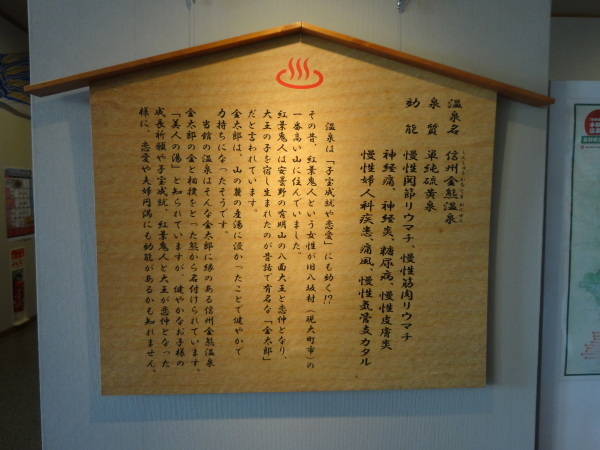 温泉名　信州金熊温泉
泉質　単純硫黄泉
効能　慢性関節リウマチ、慢性筋肉リウマチ
神経痛、神経炎、糖尿病、慢性皮膚炎
慢性婦人科疾患、痛風、慢性気管支カタル
温泉は「子宝成就や恋愛」にも効く!?
その昔、紅葉鬼人という女性が旧八坂村（現大町市）の
一番高い山に住んでいました。
紅葉鬼人は安曇野の有明山の八面大王と恋仲となり、
大王の子を宿し生まれたのが昔話で有名な「金太郎」
だと言われています。
金太郎は、山の麓の産湯に浸かったことで健やかで
力持ちになったそうです。
当館の温泉はそんな金太郎に縁のある信州金熊温泉
金太郎の金と相撲をとった熊から名付けられています。
「美人の湯」と知られていますが、健やかなお子様の
成長祈願や子宝成就、紅葉鬼人と大王が恋仲となった
様に、恋愛や夫婦円満にも効能があるかも知れません。